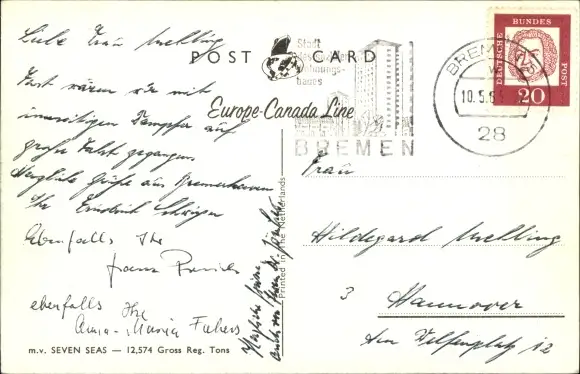 POST CARD
Europe-Canada Line
Liebe Frau Melling
Fast wären wir mit
Dampfer auf
große Fahrt gegangen.
Herzliche Grüße aus Bremerhaven
Ihr Friedrich
Ebenfalls Ihr
Franz
ebenfalls Ihre
Anna-Maria
m.v. SEVEN SEAS — 12,574 Gross Reg. Tons
Printed in the Netherlands
Stadt
des sozialen
Wohnungs-
baues
BREMEN
BREMEN
10.5.6
28
DEUTSCHE BUNDES POST
20
Frau
Hildegard Melling
3 Hannover
Am Welfenplatz 12